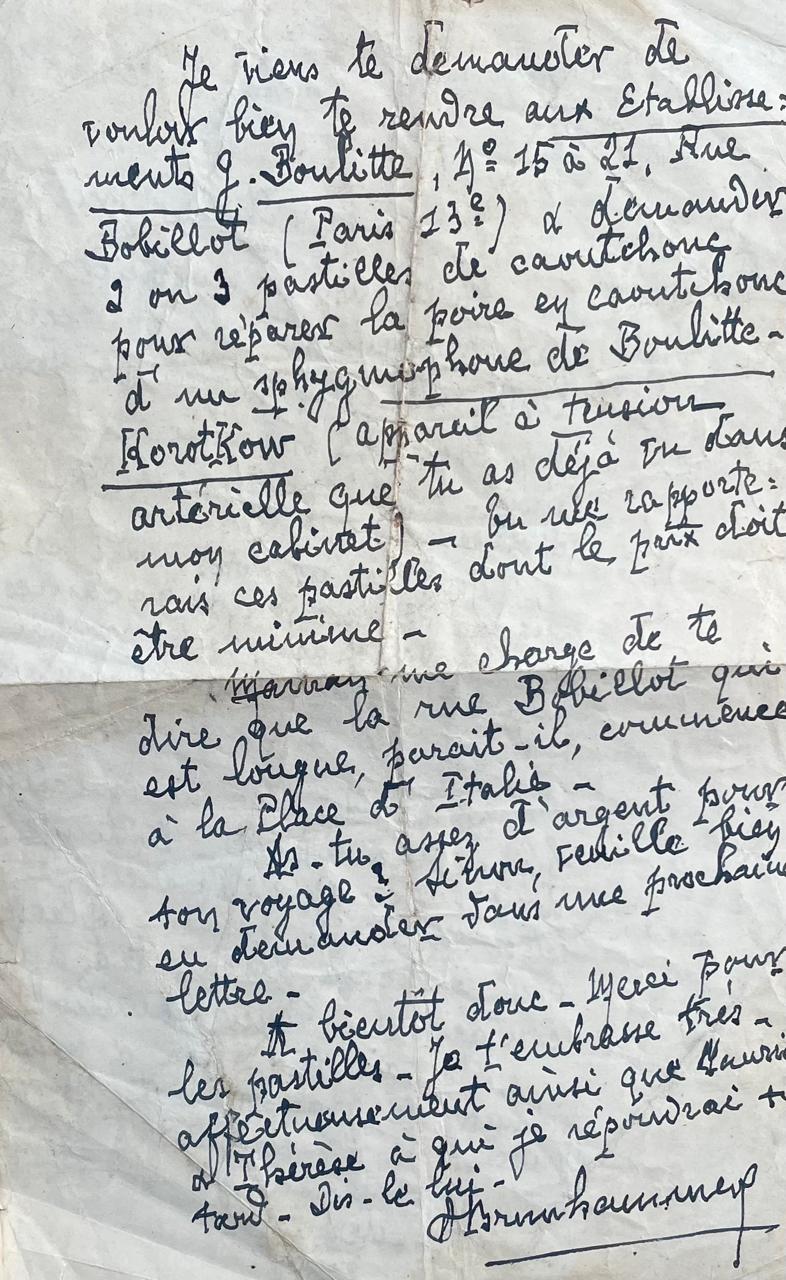 Je viens te demander de
vouloir bien te rendre aux Etablisse=
ments G. Boulitte, Nº 15 à 21, Rue
Bobillot (Paris 13e) & demander
2 ou 3 pastilles de caoutchouc
pour réparer la poire en caoutchouc
d'un sphygmophone de Boulitte-
Korotkow (appareil à tension
artérielle que tu as déjà vu dans
mon cabinet) - tu me rapporte=
rais ces pastilles dont le prix doit
être minime -
me charge de te
dire que la rue Bobillot qui
est longue, parait-il, commence
à la Place d'Italie -
As-tu assez d'argent pour
ton voyage ? sinon, veuille bien
en demander dans une prochaine
lettre -
A bientôt donc - Merci pour
les pastilles - Je t'embrasse très -
affectueusement ainsi que
& Thérèse à qui je répondrai
tard - Dis-le lui -